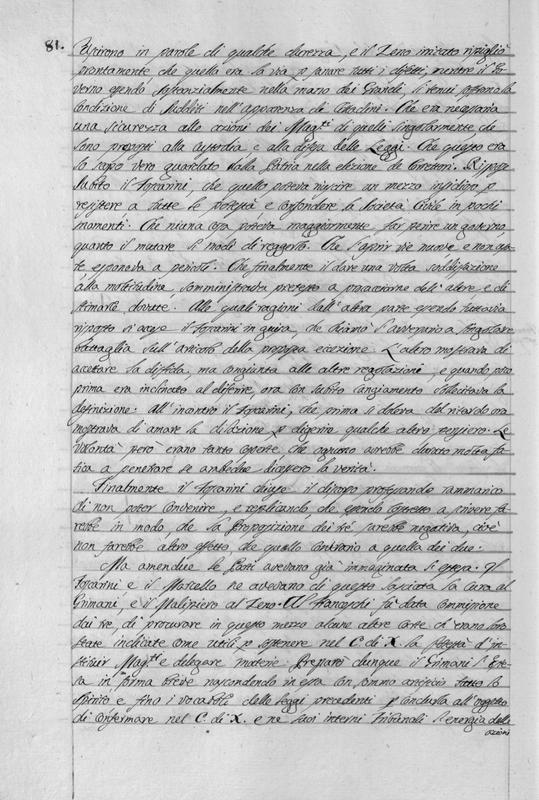 81.
Uscirono in parole di qualche durezza, e il Zeno irritato ripigliò
prontamente che quella era la via p sanare tutti i difetti, mentre il Go-
verno essendo sostanzialmente nella mano dei Grandi, li tenui erano la
Condizione di Sudditi nell'apparenza di Cittadini. Che era necessaria
una sicurezza alle azioni dei Mag.ti di quelli singolarmente che
sono proposti alla custodia e alla difesa delle Leggi. Che questo era
lo scopo vero guardato dalla Patria nella elezione de Correttori. Rispose
subito il Foscarini, che quello poteva riuscire un mezzo insidioso p
resistere a tutte le potestà e confondere la Società Civile in pochi
momenti. Che niuna cosa poteva maggiormente far perire un governo
quanto il mutare li modi di reggerlo. Che l'aprir vie nuove e non usa-
te esponeva a pericoli. Che finalmente il dare una volta soddisfazione
alla moltitudine, somministrava pretesto a procacciarne dell'altre e di
stimarle dovute. Alle quali ragioni dall'altra parte essendo tuttavia
risposto si accese il Foscarini in guisa, che chiamò l'avversario a singolare
battaglia sull'articolo della proposta eccezione. L'altro mostrava di
accettare la disfida, ma congiunta alle altre regolazioni, e quando poco
prima era inclinato al differire, ora con subito cangiamento sollecitava la
definizione. All'incontro il Foscarini, che prima si doleva del ritardo ora
mostrava di amare la dilazione p digerir qualche altro pensiero. Le
volontà però erano tanto coperte che ognuno avrebbe durato molta fa-
tica a penetrare se ambedue dicessero la verità.
Finalmente il Foscarini chiuse il discorso professando rammarico
di non poter convenire, e replicando che essendo costretto a scrivere fa-
rebbe in modo, che la Proposizione dei tré sarebbe negativa, cioè
non farebbe altro effetto, che quello contrario a quella dei due.
Ma amendue le Parti avevano già immaginata la stesa. Il
Foscarini e il Marcello ne avevano di questo lasciata la cura al
Grimani, e il Malipiero al Zeno. Al Franceschi fu data commissione
dai tre, di procurare in questo mezzo alcune altre carte ch'erano loro
state indicate come utili p sostenere nel C. di X. la potestà d'in-
stituir Mag.ti e delegare materie. Preparò dunque il Grimani l'este-
sa in forma breve nascondendo in essa con sommo artificio tutto lo
spirito e fino i vocaboli delle leggi precedenti p condurla all'oggetto
di confermare nel C. di X. e ne suoi interni Tribunali l'energia delle
azioni